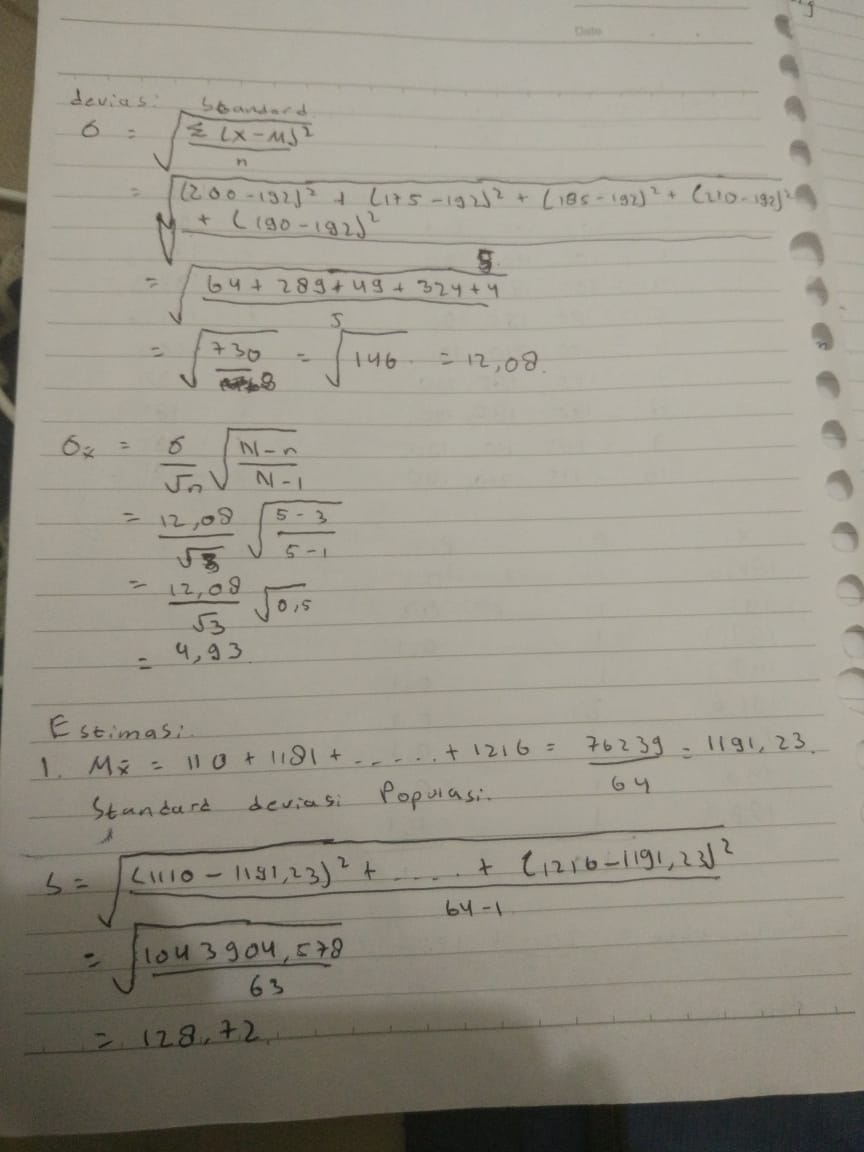 Date
devias: Standard
σ = √(Σ (x-M)² / n)
= √((200-192)² + (175-192)² + (185-192)² + (210-192)²
+ (190-192)² / 5)
= √(64 + 289 + 49 + 324 + 4 / 5)
= √(730 / ) = √146 = 12,08.
σx̄ = σ/√n √(N-n / N-1)
= 12,08/√3 √(5-3 / 5-1)
= 12,08/√3 √0,5
= 4,93
Estimasi.
1. Mx̄ = 1110 + 1181 + ...... + 1216 = 76239/64 = 1191,23.
Standard deviasi Populasi.
S = √((1110-1191,23)² + ..... + (1216-1191,23)² / 64-1)
= √(1043904,578 / 63)
= 128,72